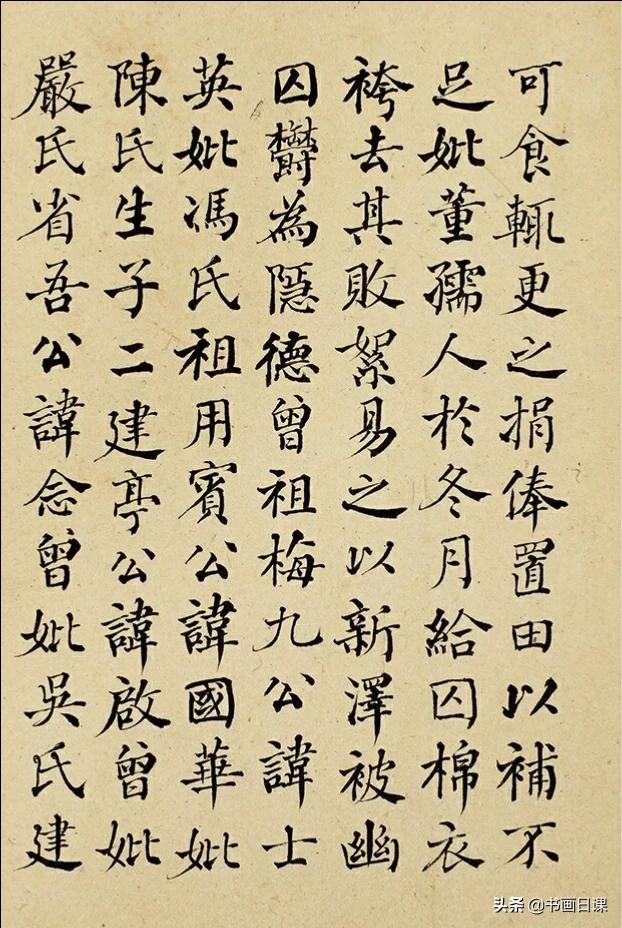 可食輒更之捐俸置田以補不
足妣董孺人於冬月給囚棉衣
袴去其敗絮易之以新澤被幽
囚欝為隱德曾祖梅九公諱士
英妣馮氏祖用賓公諱國華妣
陳氏生子二建亭公諱啟曾妣
嚴氏省吾公諱念曾妣吳氏建
头条 @书画日课